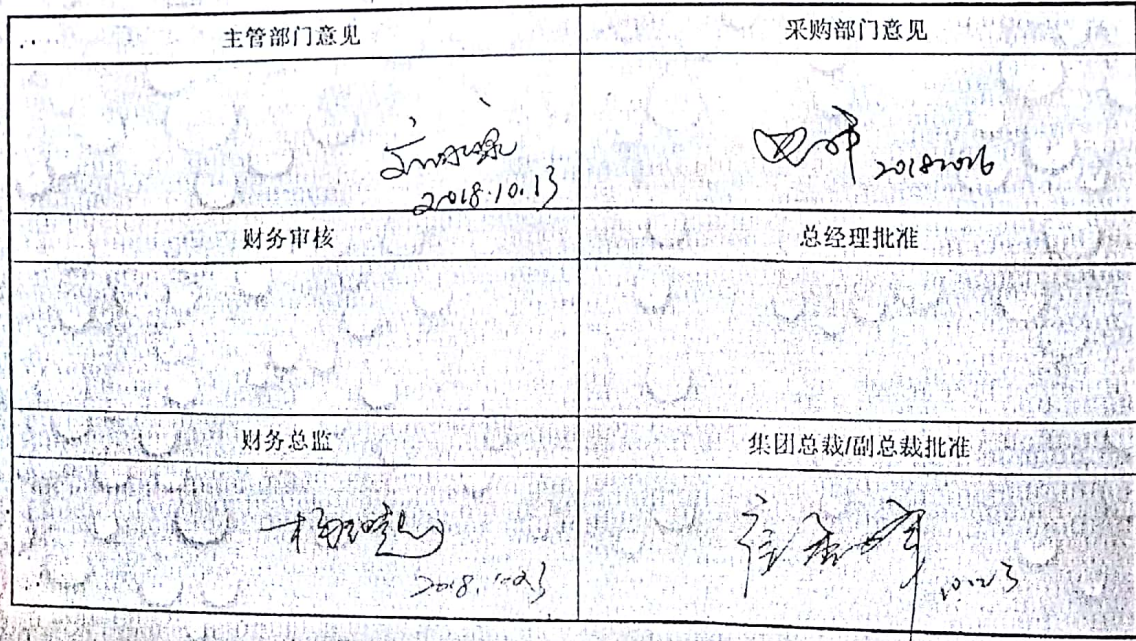 主管部门意见
采购部门意见
2018.10.13
20181016
财务审核
总经理批准
财务总监
集团总裁/副总裁批准
2018.10.23
10.23